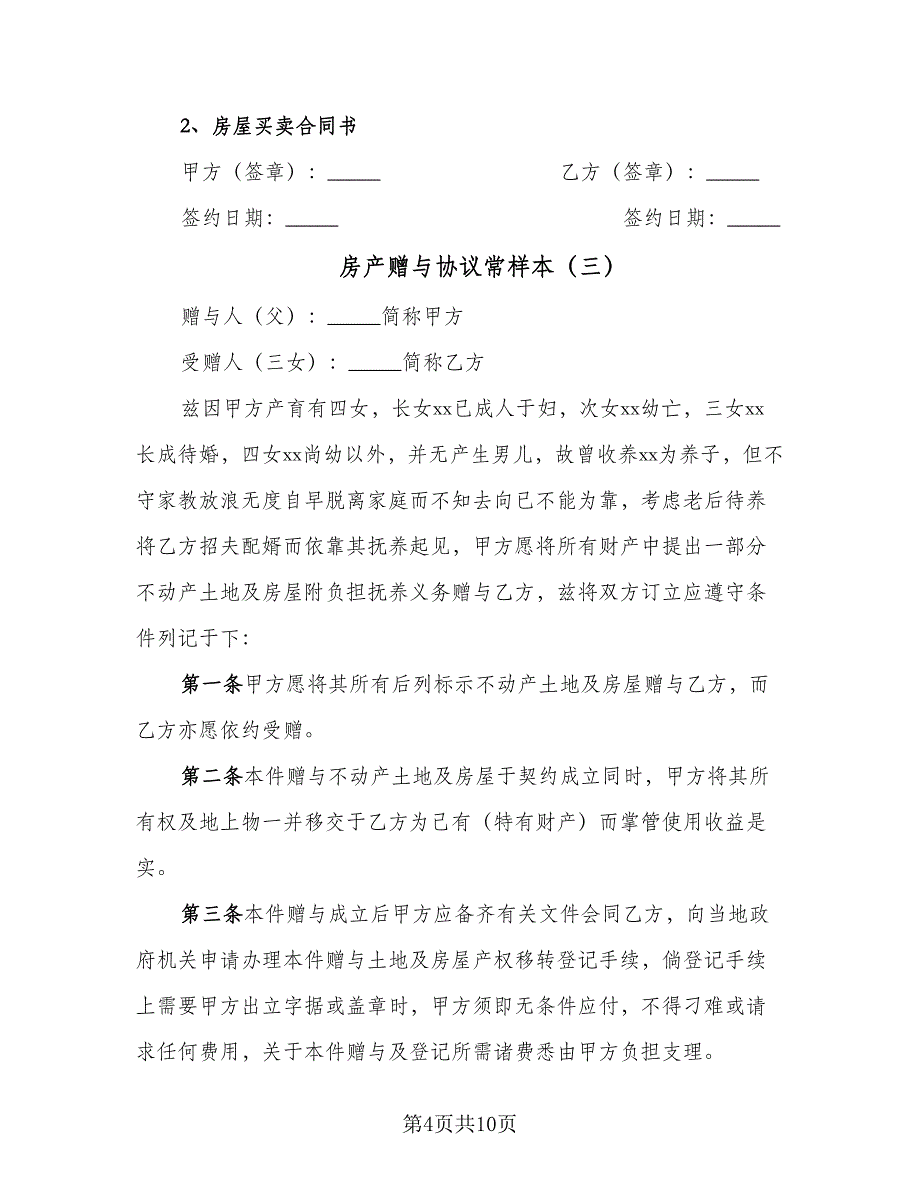 2、房屋买卖合同书
甲方（签章）：_____ 乙方（签章）：_____
签约日期：_____ 签约日期：_____
房产赠与协议常样本（三）
赠与人（父）：_____简称甲方
受赠人（三女）：_____简称乙方
兹因甲方产育有四女，长女xx已成人于妇，次女xx幼亡，三女xx
长成待婚，四女xx尚幼以外，并无产生男儿，故曾收养xx为养子，但不
守家教放浪无度自早脱离家庭而不知去向已不能为靠，考虑老后待养
将乙方招夫配婿而依靠其抚养起见，甲方愿将所有财产中提出一部分
不动产土地及房屋附负担抚养义务赠与乙方，兹将双方订立应遵守条
件列记于下：
第一条甲方愿将其所有后列标示不动产土地及房屋赠与乙方，而
乙方亦愿依约受赠。
第二条本件赠与不动产土地及房屋于契约成立同时，甲方将其所
有权及地上物一并移交于乙方为己有（特有财产）而掌管使用收益是
实。
第三条本件赠与成立后甲方应备齐有关文件会同乙方，向当地政
府机关申请办理本件赠与土地及房屋产权移转登记手续，倘登记手续
上需要甲方出立字据或盖章时，甲方须即无条件应付，不得刁难或请
求任何费用，关于本件赠与及登记所需诸费悉由甲方负担支理。
第4页共10页